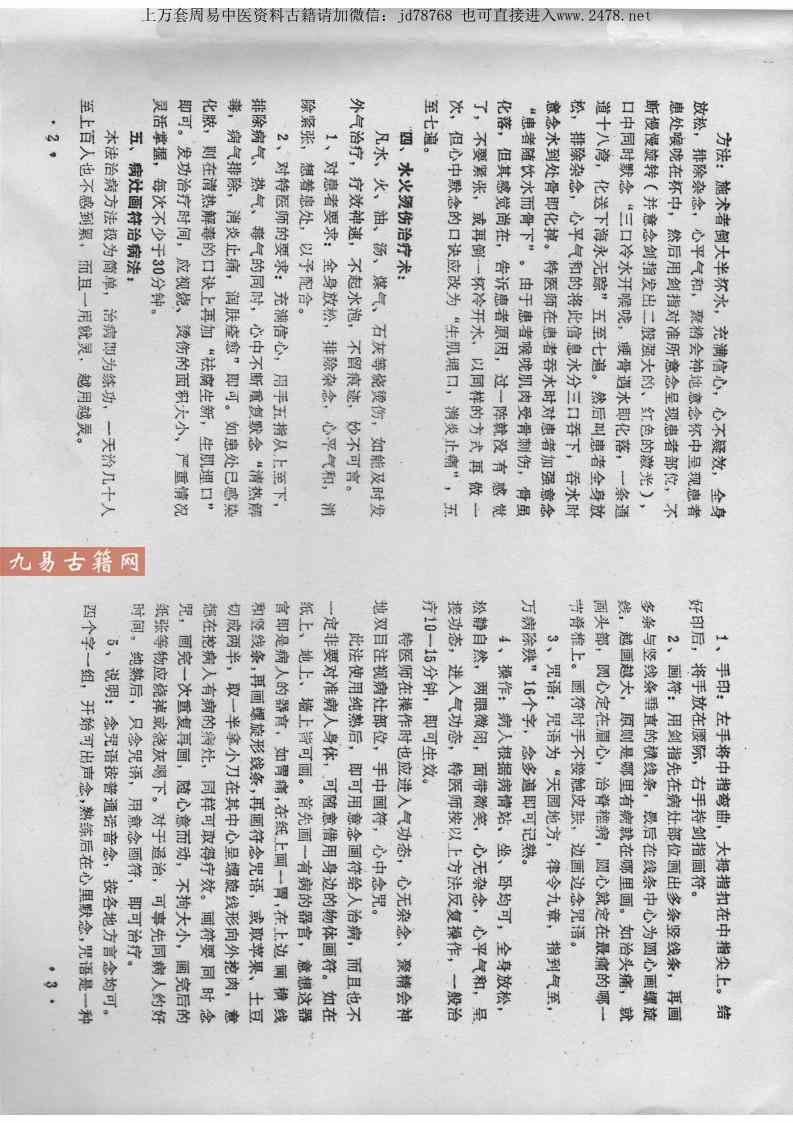 上万套周易中医资料古籍请加微信：jd78768 也可直接进入www.2478.net
方法：施术者倒大半杯水，充满信心，心不疑效，全身
放松，排除杂念，心平气和，聚精会神地意念杯中呈现患者
患处喉咙在杯中，然后用剑指对准所意念呈现患者部位，不
断慢慢旋转（并意念剑指发出二股强大的、红色的激光），
口中同时默念“三口冷水开喉咙，硬骨遇水即化落，一条通
道十八湾，化送下海永无踪”五至七遍。然后叫患者全身放
松，排除杂念，心平气和的将此信息水分三口吞下，吞水时
意念水到处骨即化掉。特医师在患者吞水时对患者加强意念
“患者随饮水而骨下”。由于患者喉咙肌肉受骨刺伤，骨虽
化落，但其感觉尚在，告诉患者原因，过一阵就没有感觉
了，不要紧张，或再倒一杯冷开水，以同样的方式再做一
次，但心中默念的口诀应改为“生肌埋口，消炎止痛”，五
至七遍。
四、水火烫伤治疗术：
凡水、火、油、汤、煤气、石灰等烧烫伤，如能及时发
外气治疗，疗效神速，不起水泡，不留痕迹，妙不可言。
1、对患者要求：全身放松，排除杂念，心平气和，消
除紧张，想着患处，以予配合。
2、对特医师的要求：充满信心，用手五指从上至下，
排除病气、热气、毒气的同时，心中不断重复默念“清热解
毒，病气排除，消炎止痛，润肤痊愈”即可。如患处已感染
化脓，则在清热解毒的口诀上再加“祛腐生新，生肌埋口”
即可。发功治疗时间，应视烧、烫伤的面积大小，严重情况
灵活掌握，每次不少于30分钟。
五、病灶画符治病法：
本法治病方法极为简单，治病即为练功，一天治几十人
至上百人也不感到累，而且一用就灵，越用越灵。
·2·
九易古籍网
1、手印：左手将中指弯曲，大拇指扣在中指尖上。结
好印后，将手放在腰际，右手持剑指画符。
2、画符：用剑指先在病灶部位画出多条竖线条，再画
多条与竖线条垂直的横线条，最后在线条中心为圆心画螺旋
线，越画越大，原则是哪里有病就在哪里画。如治头痛，就
画头部，圆心定在眉心，治脊椎病，圆心就定在最痛的哪一
节脊椎上。画符时手不接触皮肤，边画边念咒语。
3、咒语：咒语为“天圆地方，律令九章，指到气至，
万病除殃”16个字，念多遍即可记熟。
4、操作：病人根据病情站、坐、卧均可，全身放松，
松静自然，两眼微闭，面带微笑，心无杂念，心平气和，呈
接功态，进入气功态，特医师按以上方法反复操作，一般治
疗10—15分钟，即可生效。
特医师在操作时也应进入气功态，心无杂念、聚精会神
地双目注视病灶部位，手中画符，心中念咒。
此法使用纯熟后，即可用意念画符给人治病，而且也不
一定非要对准病人身体，可随意借用身边的物体画符。如在
纸上、地上、墙上皆可画。首先画一有病的器官，意想这器
官即是病人的器官，如胃痛，在纸上画一胃，在上边画横线
和竖线条，再画螺旋形线条，再画符念咒语，或取苹果、土豆
切成两半，取一半拿小刀在其中心呈螺旋线形向外挖肉，意
想在挖病人有病的病灶，同样可取得疗效。画符要同时念
咒，画完一次重复再画，随心意而动，不拘大小，画完后的
纸张等物应烧掉或浇灰埸下。对于遥治，可事先同病人约好
时间。纯熟后，只念咒语，用意念画符，即可治疗。
5、说明：念咒语按普通语音念，按各地方言念均可。
四个字一组，开始可出声念，熟练后在心里默念，咒语是一种
·3·